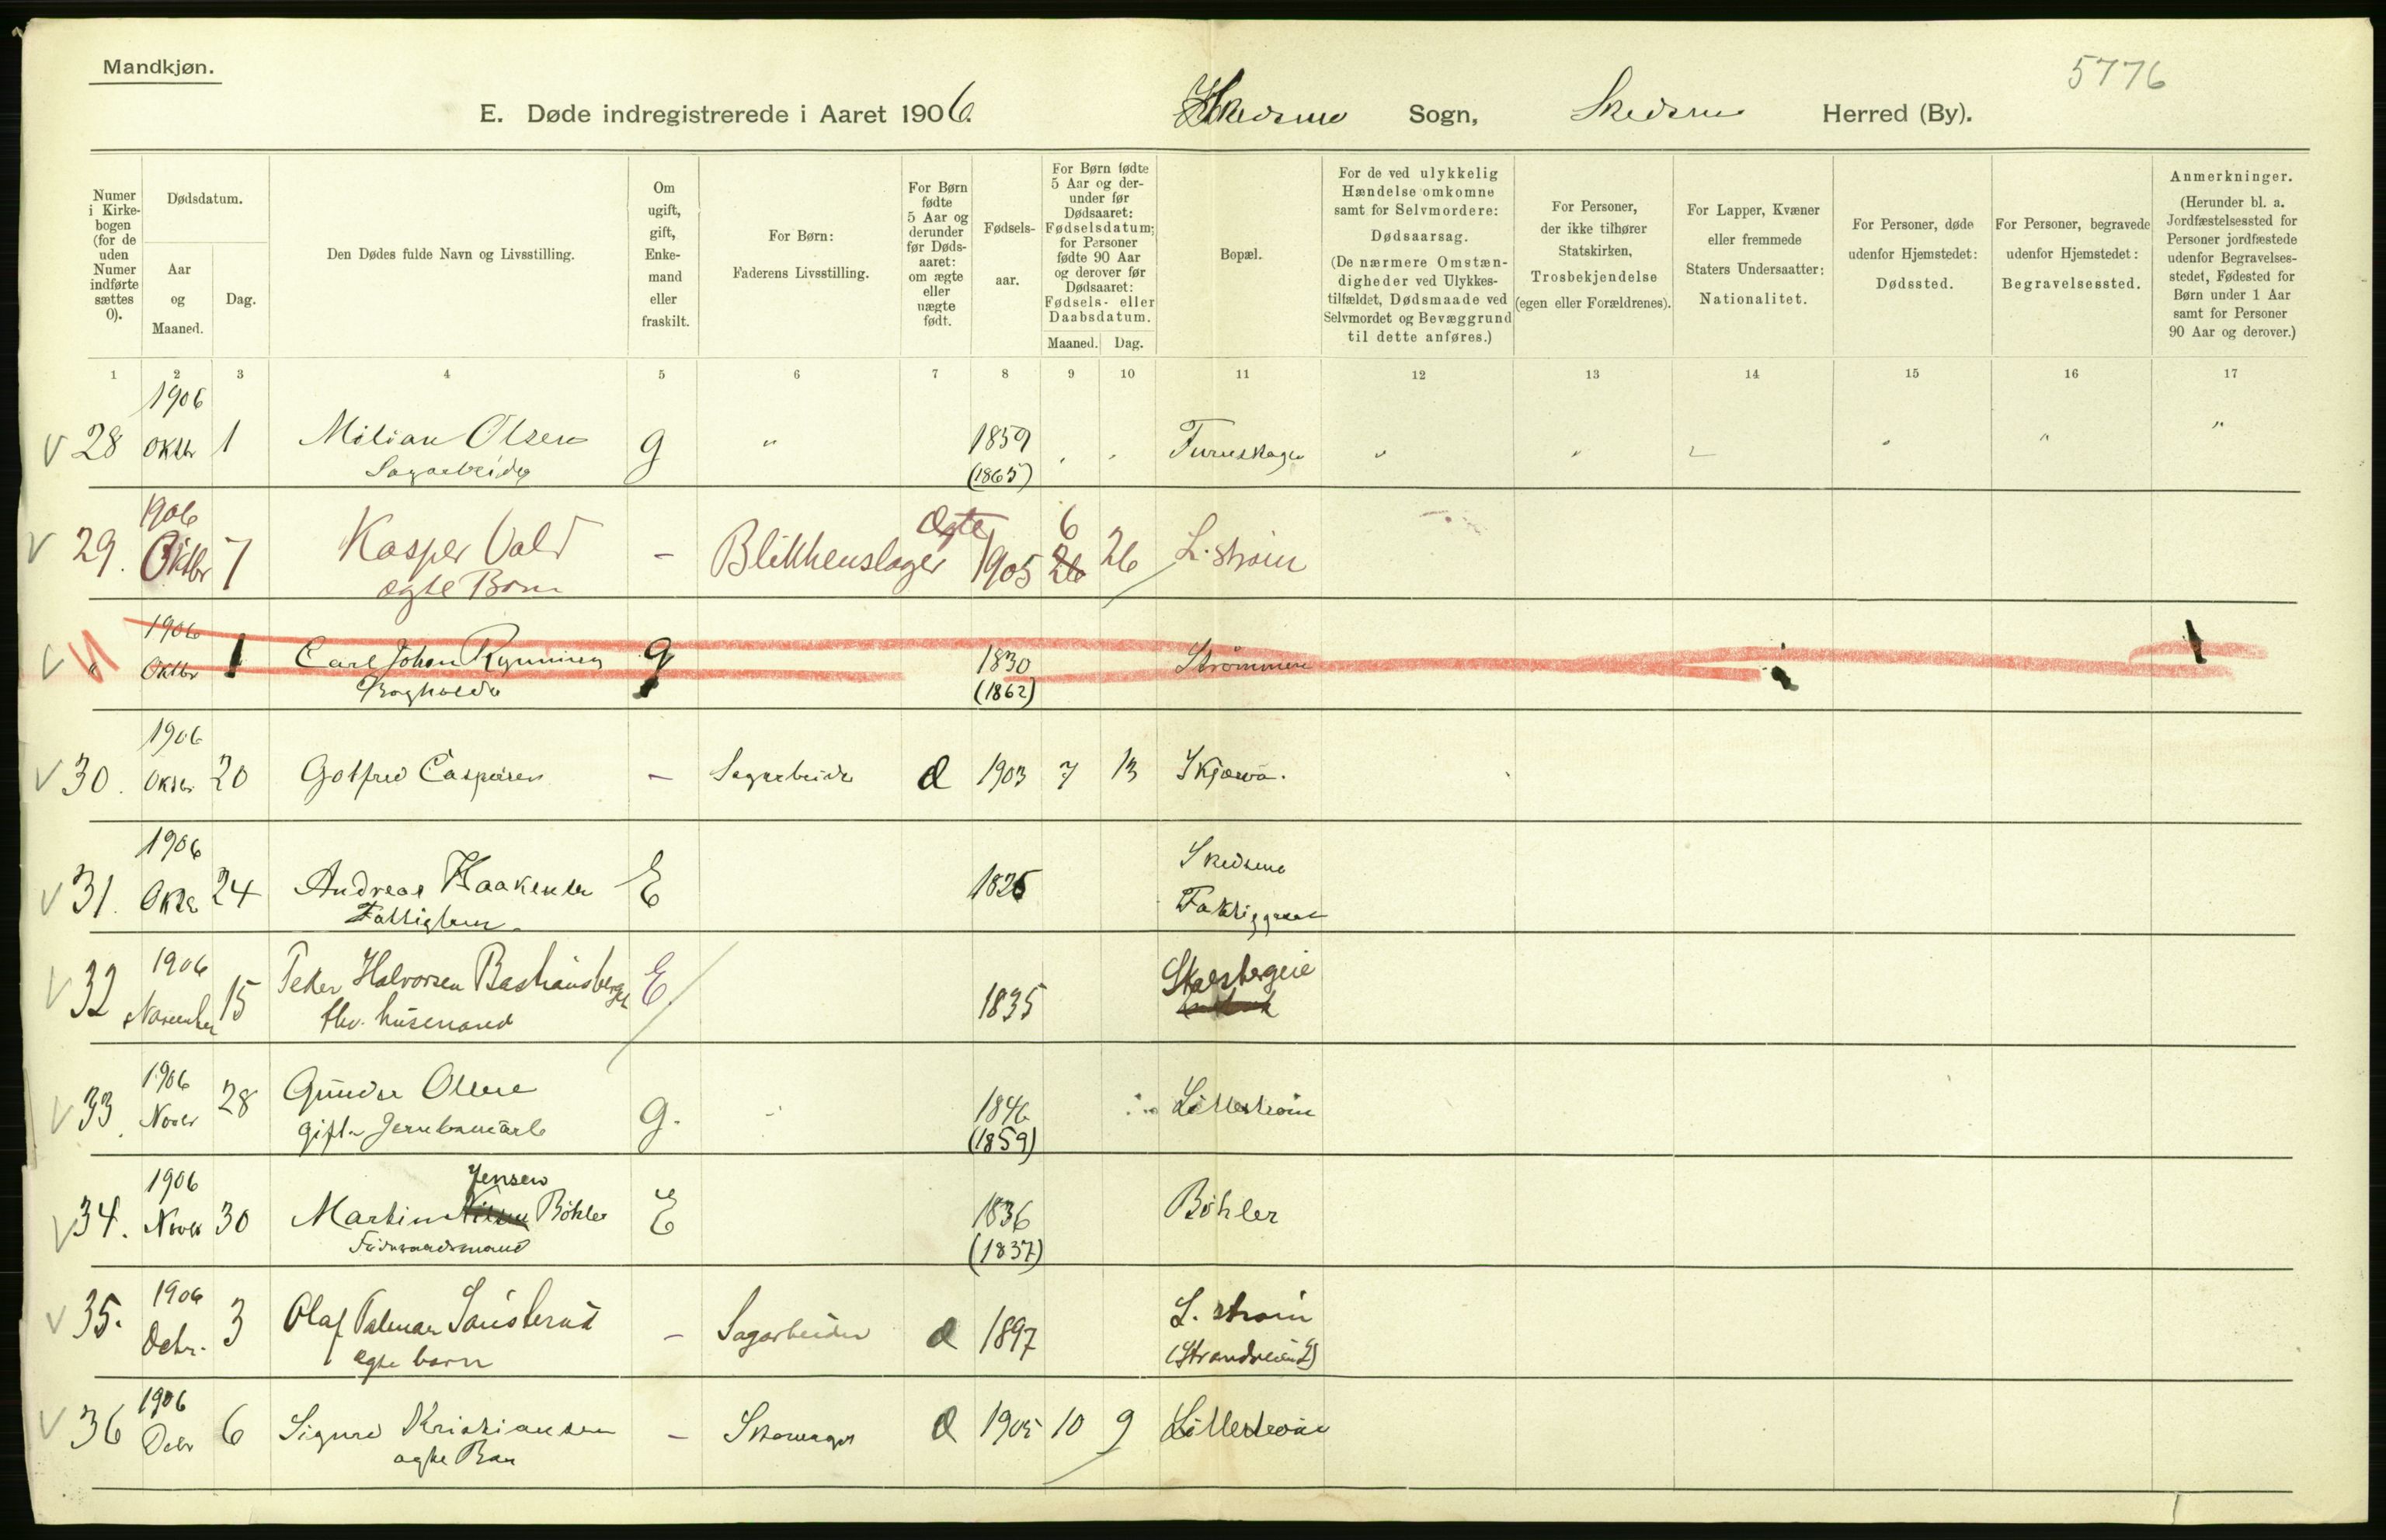 Mandkjøn.
5776
E. Døde indregistrerede i Aaret 1906. Skedsmo Sogn, Skedsmo Herred (By).
Numer i Kirke- bogen (for de uden Numer indførte sættes 0).
Dødsdatum.
Aar og Maaned.
Dag.
Den Dødes fulde Navn og Livsstilling.
Om ugift, gift, Enke- mand eller fraskilt.
For Børn:
Faderens Livsstilling.
For Børn fødte 5 Aar og derunder før Døds- aaret: om ægte eller uægte født.
Fødsels- aar.
For Børn fødte 5 Aar og der- under før Dødsaaret: Fødselsdatum; for Personer fødte 90 Aar og derover før Dødsaaret: Fødsels- eller Daabsdatum.
Maaned. Dag.
Bopæl.
For de ved ulykkelig Hændelse omkomne samt for Selvmordere: Dødsaarsag.
(De nærmere Omstæn- digheder ved Ulykkes- tilfældet, Dødsmaade ved Selvmordet og Bevæggrund til dette anføres.)
For Personer, der ikke tilhører Statskirken, Trosbekjendelse (egen eller Forældrenes).
For Lapper, Kvæner eller fremmede Staters Undersaatter: Nationalitet.
For Personer, døde udenfor Hjemstedet: Dødssted.
For Personer, begravede udenfor Hjemstedet: Begravelsessted.
Anmerkninger.
(Herunder bl. a. Jordfæstelsessted for Personer jordfæstede udenfor Begravelses- stedet, Fødested for Børn under 1 Aar samt for Personer 90 Aar og derover.)
1 2 3 4 5 6 7 8 9 10 11 12 13 14 15 16 17
1906
V 28 Oktbr 1 Milian Olsen g " 1859
Sagarbeider (1865)
1906 Ægte 6
V 29. Oktbr 7 Kasper Vold - Blikkenslager 1905 26 26 L.strøm
ægte Barn
1906
V " Oktbr 1 Carl Johan Rynning g 1830 Strømmen
Bogholder (1862)
1906
V 30. Oktbr 20 Gotfred Caspersen - Sagarbeider Æ 1903 7 13 Skjærva.
1906 Skedsmo
V 31. Oktbr 24 Andreas Haakensen E 1825 Fattiggaard
Fattiglem.
1906
V 32 November 15 Peder Halvorsen Bashusberget E 1835
fhv. husmand
1906
V 33. Novbr 28 Gunder Olsen g. 1846 Lillestrøm
gift. (1859)
1906 Jensen
V 34. Novbr 30 Martin Bøhler E 1836 Bøhler
Føderaadsmand (1837)
1906
V 35. Decbr. 3 Olaf - Sagarbeider Æ 1897 L. strøm
ægte barn (Strandveien 2)
1906
V 36 Decbr 6 Sigurd Kristiansen - Skomager Æ 1905 10 9 Lillestrøm
ægte Barn